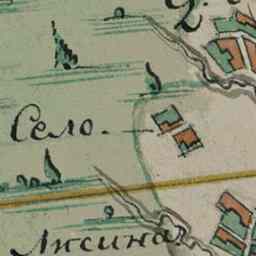 2.
Село.
Лисина